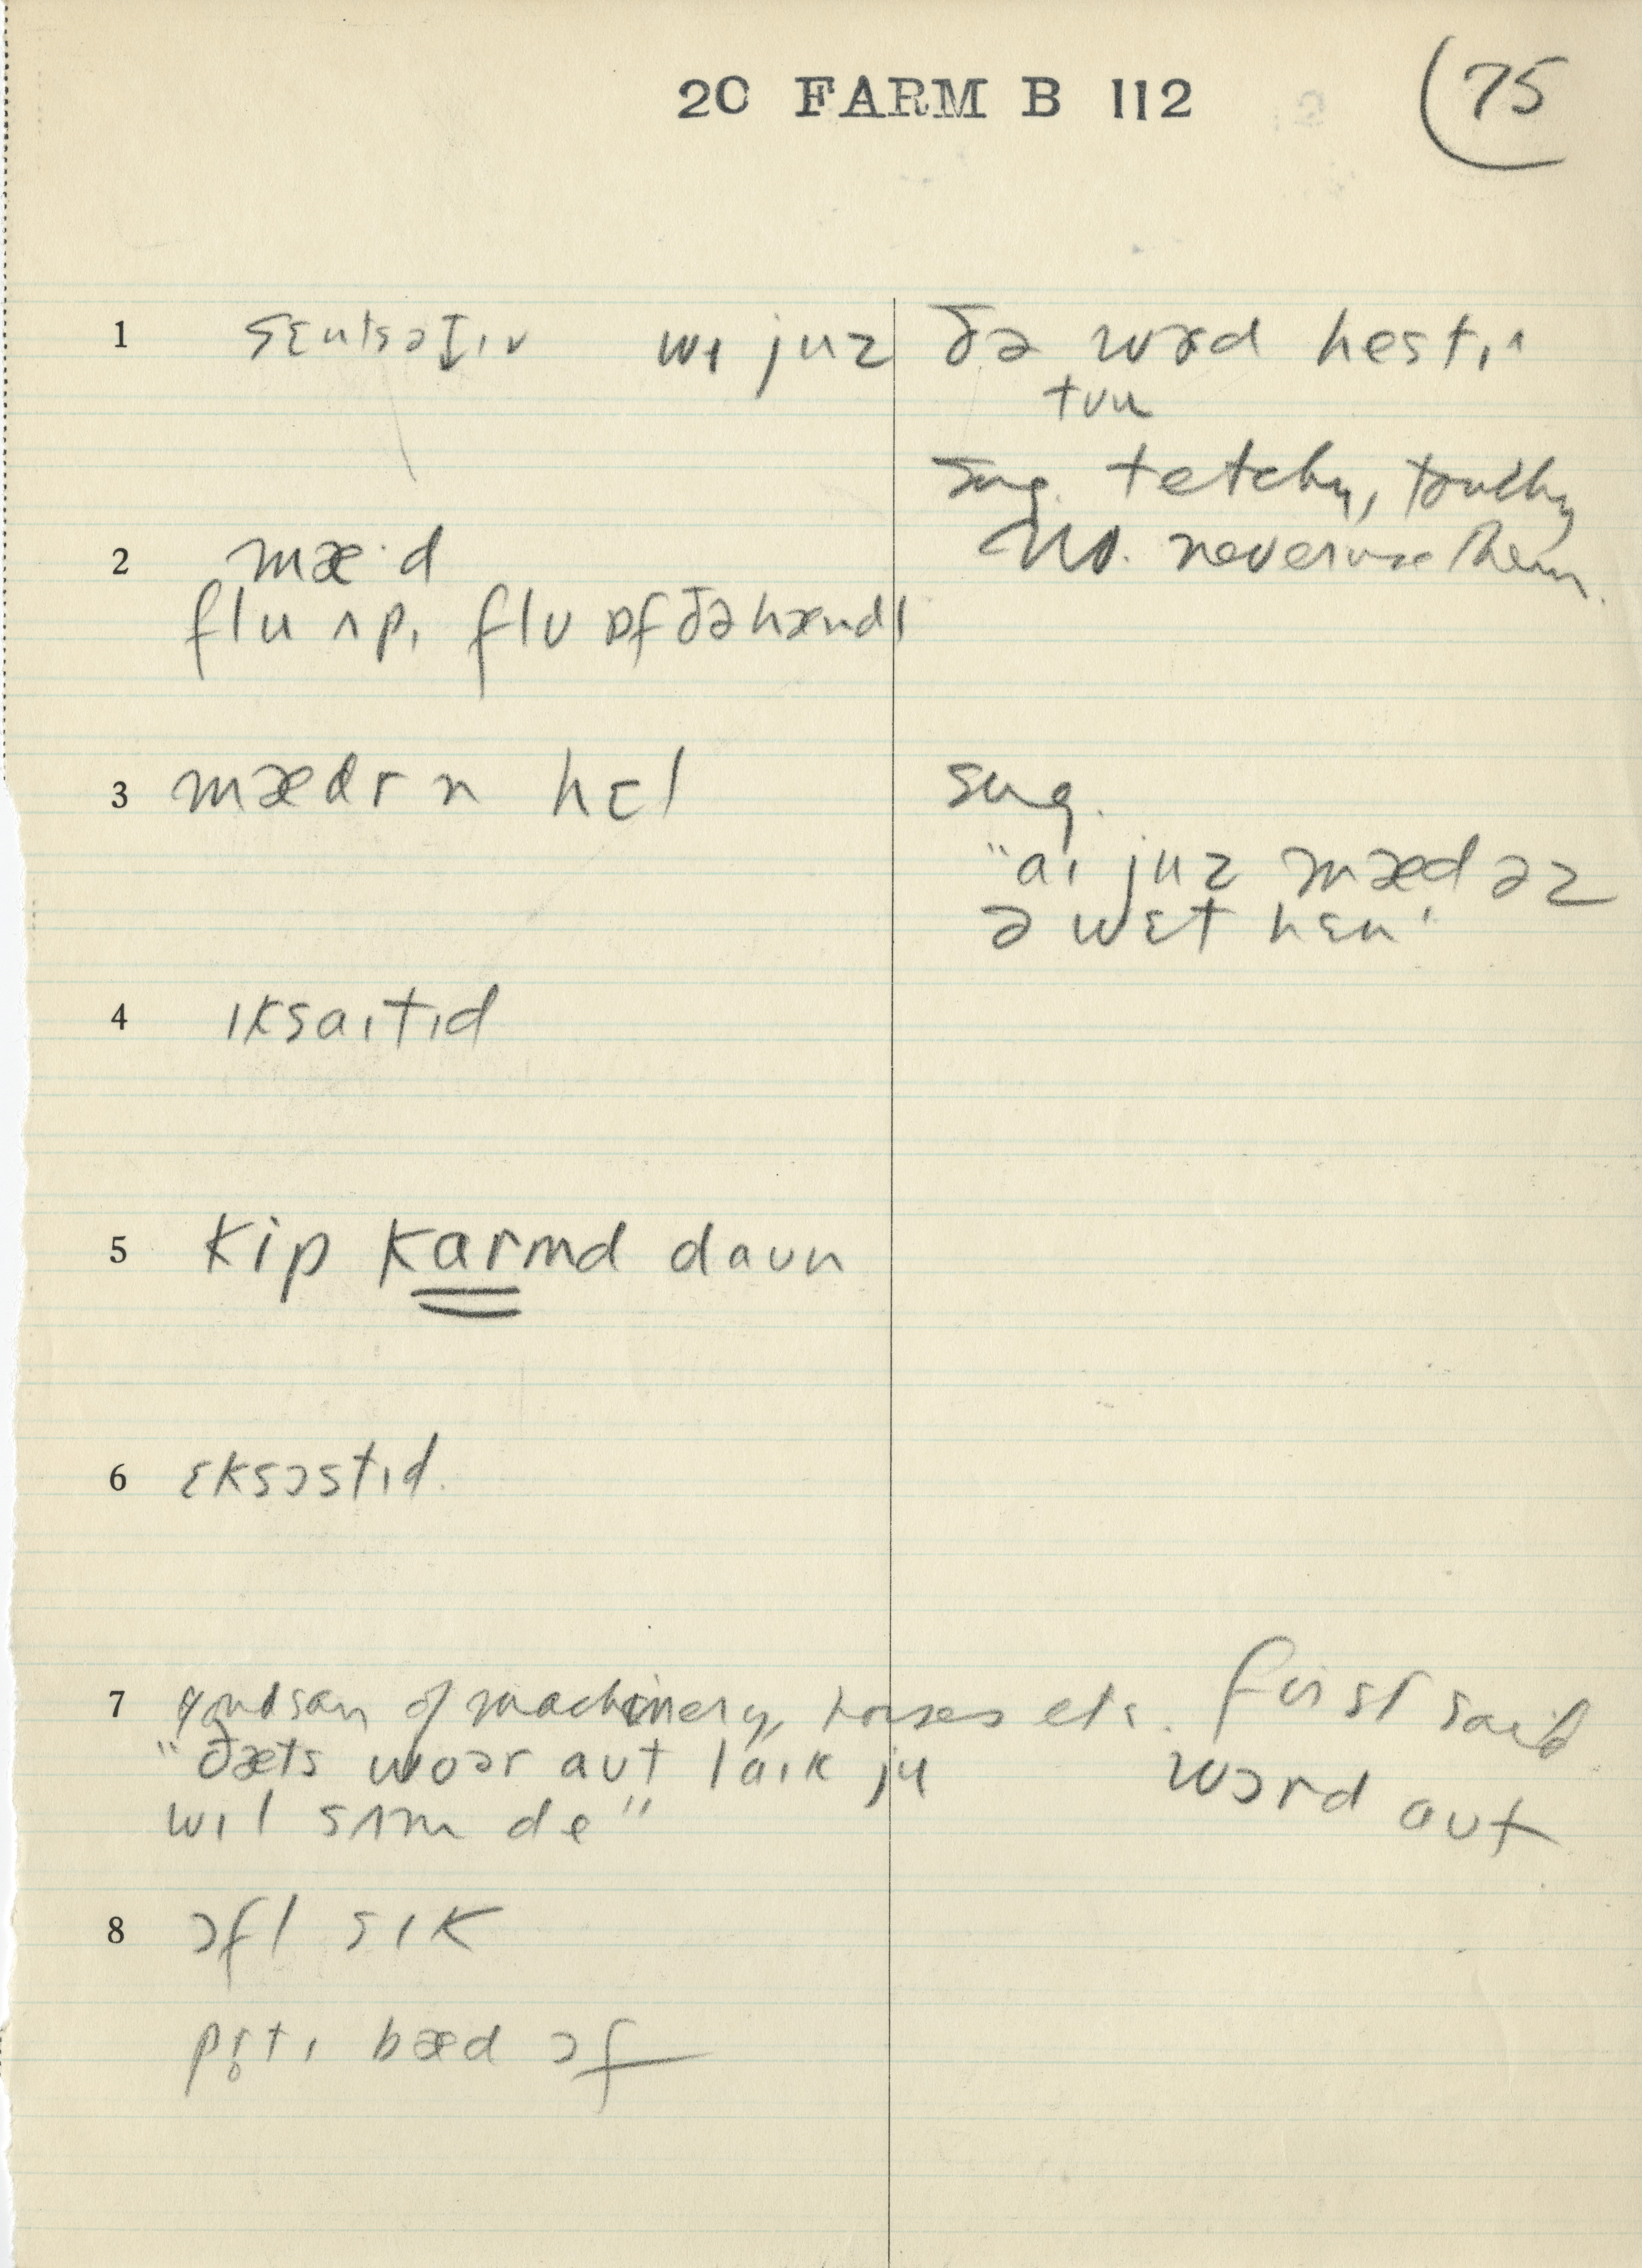 20 FARM B 112
75
1 sɛntsətɪv wɪ juz ðə wɚd hestɪ
tuu
sug. tetchy, touchy
No. never use them.
2 mæ·d
flu ʌp, flu ɒf ðə hændl
3 mædr n hɛl
sug.
"aɪ juz mæd əz
ə wɛt hɛn"
4 ɪksaɪtɪd
5 kip karmd daun
6 ɛksɔstɪd.
7 of machinery, horses etc. First said
"ðæts woər aut laɪk ju
wɔrd aut
wɪl sʌm de"
8 ɔfl sɪk
bæd ɔf